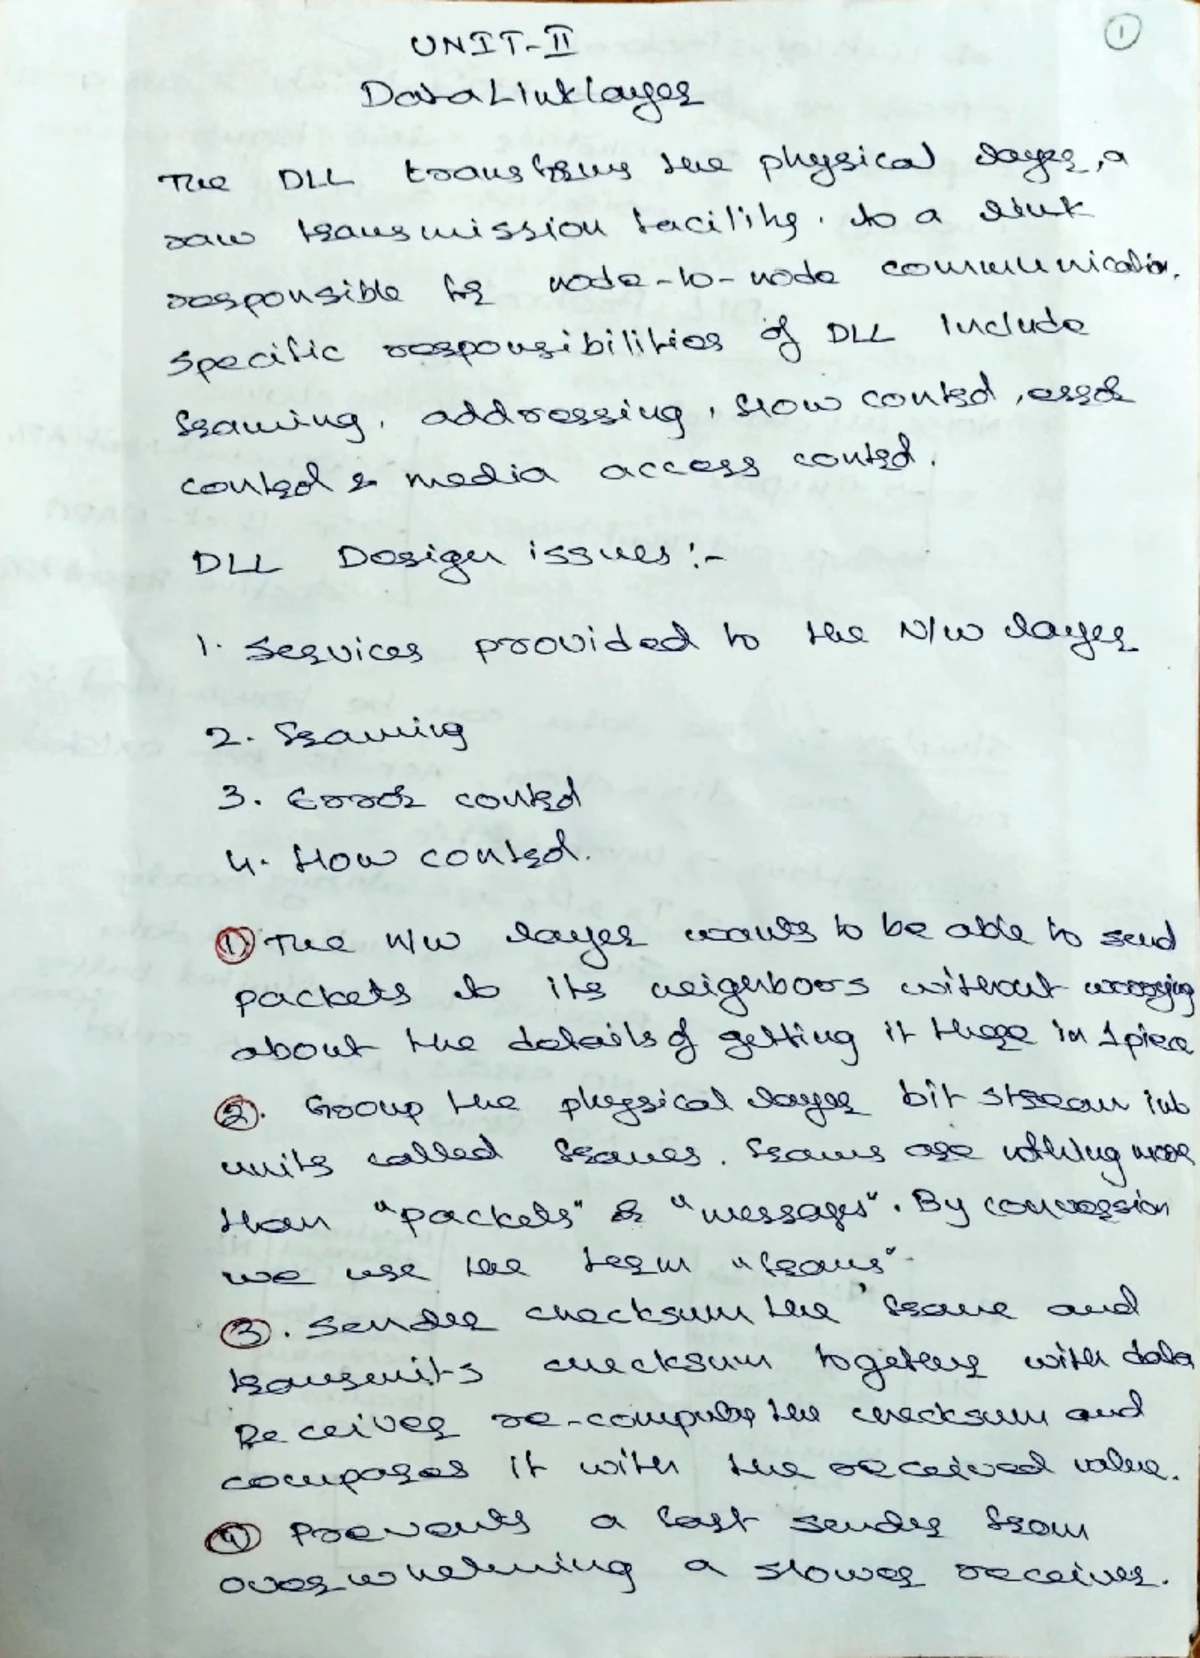 1
UNIT-II
Data Link layer
The DLL transforms the physical layer, a
raw transmission facility. to a link
responsible for node-to-node communication.
Specific responsibilities of DLL Include
framing, addressing, flow control, error
control & media access control.
DLL Design issues :-
1. Services provided to the N/W layer
2. Framing
3. Error control
4. Flow control.
1) The N/W layer wants to be able to send
packets to its neighboors without worrying
about the details of getting it there in 1 piece
2). Group the physical layer bit stream into
units called frames. Frames are nothing more
than "packets" & "messages". By convession
we use the term "frams".
3). Sender checksum the frame and
transmits checksum together with data
Receiver re-computes the checksum and
compares it with the received value.
4) Prevents a fast sender from
overwhelming a slower receiver.